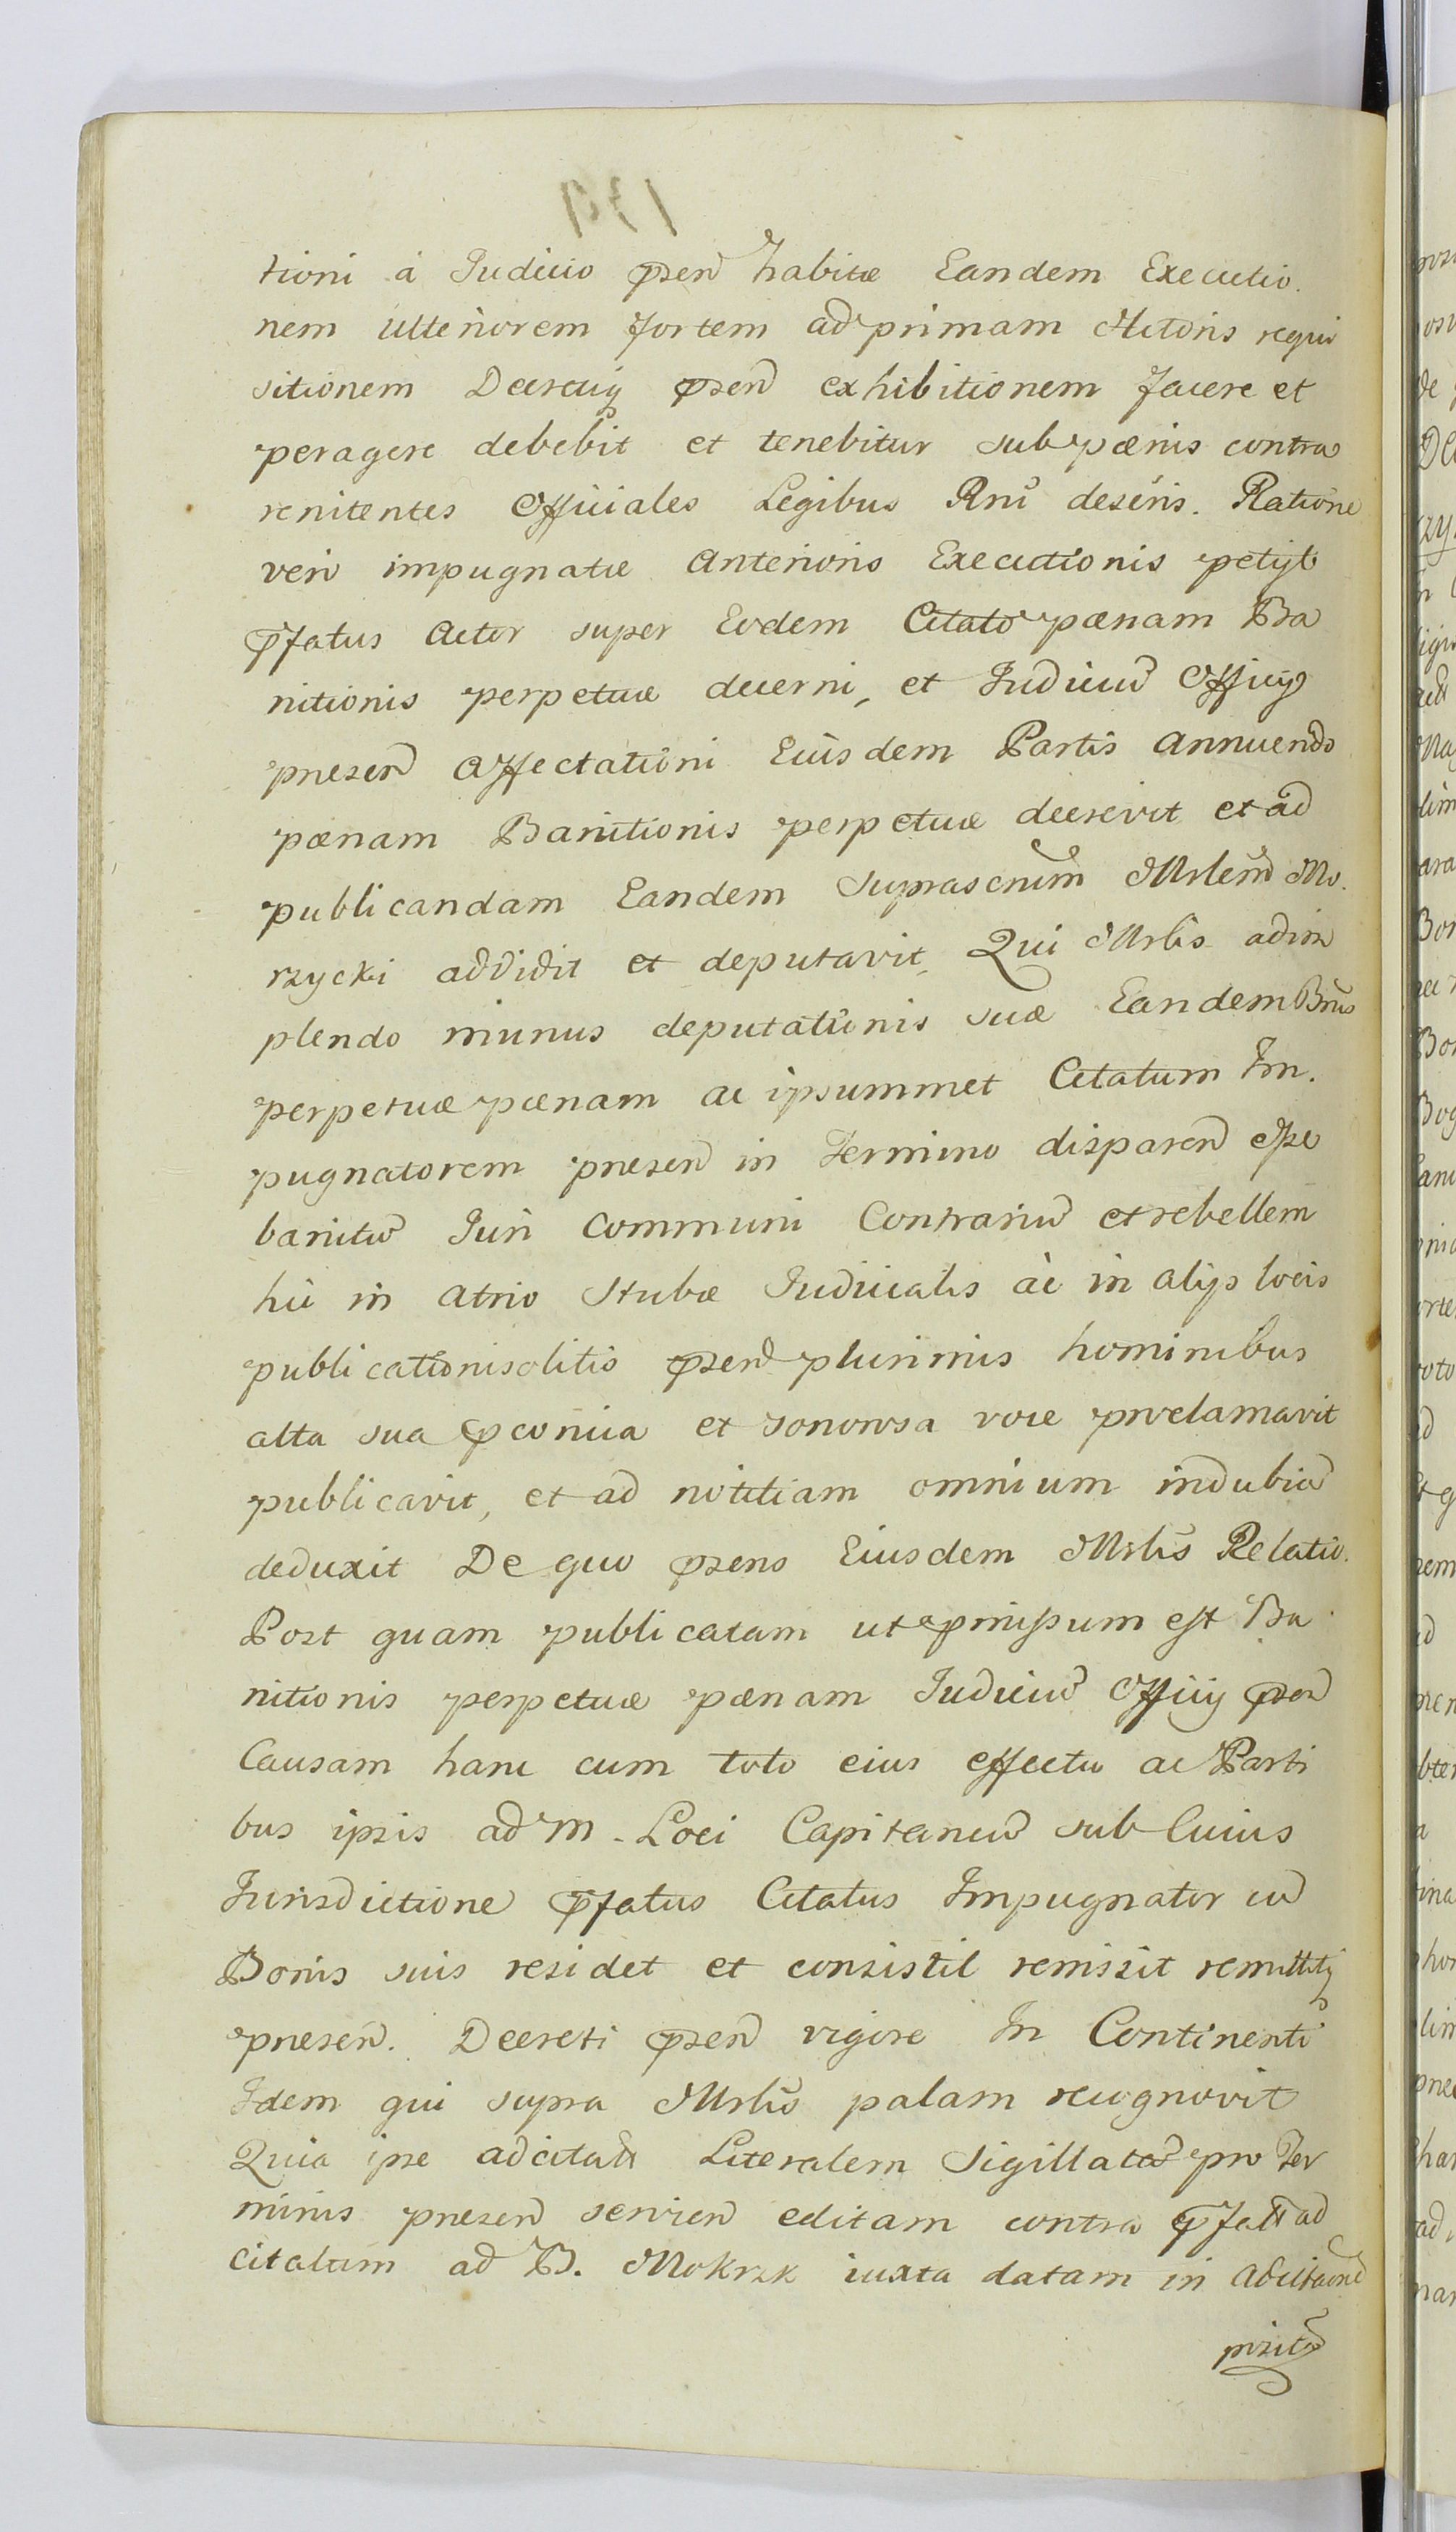 tioni á Judicio p̄sen habitæ Eandem Executio.
nem ulteriorem fortem ad primam Actoris requi
sitionem Decretiq; p̄sen exhibitionem facere et
peragere debebit et tenebitur sub pœnis contra
renitentes Officiales Legibus Rni descris. Ratione
vero impugnatæ Anterioris Executionis petijt
p̄fatus Actor super Eodem Citato pœnam Ba
nitionis perpetuæ decerni, et Judiciu Officij
præsen Affectationi Eiusdem Partis Annuendo
pœnam Banitionis perpetuæ decrevit et ad
publicandam Eandem suprascrium Mrlem Mo.
rzycki addidit et deputavit, Qui Mrlis adim
plendo munus deputationis suæ Eandem Bnis
perpetuæ pœnam ac ipsummet Citatum Im.
pugnatorem præsen in Termino disparen esse
banitu Juri Communi Contrariu et rebellem
hic in atrio Stubæ Judicialis ac in alijs locis
publicationi solitis p̄sen plurimis hominibus
alta sua p̄conica et sonorosa voce proclamavit
publicavit, et ad notitiam omnium indubia
deduxit De quo p̄sens Eiusdem Mrlis Relatio.
Post quam publicatam ut p̄missum est Ba
nitionis perpetuæ pœnam Judiciu Officij p̄sen
Causam hanc cum toto eius effectu ac Parti
bus ipsis ad M. Loci Capitaneu sub Cuius
Jurisdictione p̄fatus Citatus Impugnator cu
Bonis suis residet et consistit remisit remittitq;
præsen. Decreti p̄sen vigore In Continenti
Idem qui supra Mrlis palam recognovit
Quia ipse adcitatt Literalem Sigillata pro Ter
minis præsen servien editam contra p̄fatt ad
citatum ad B. Mokrzk iuxta datam in adcitaone